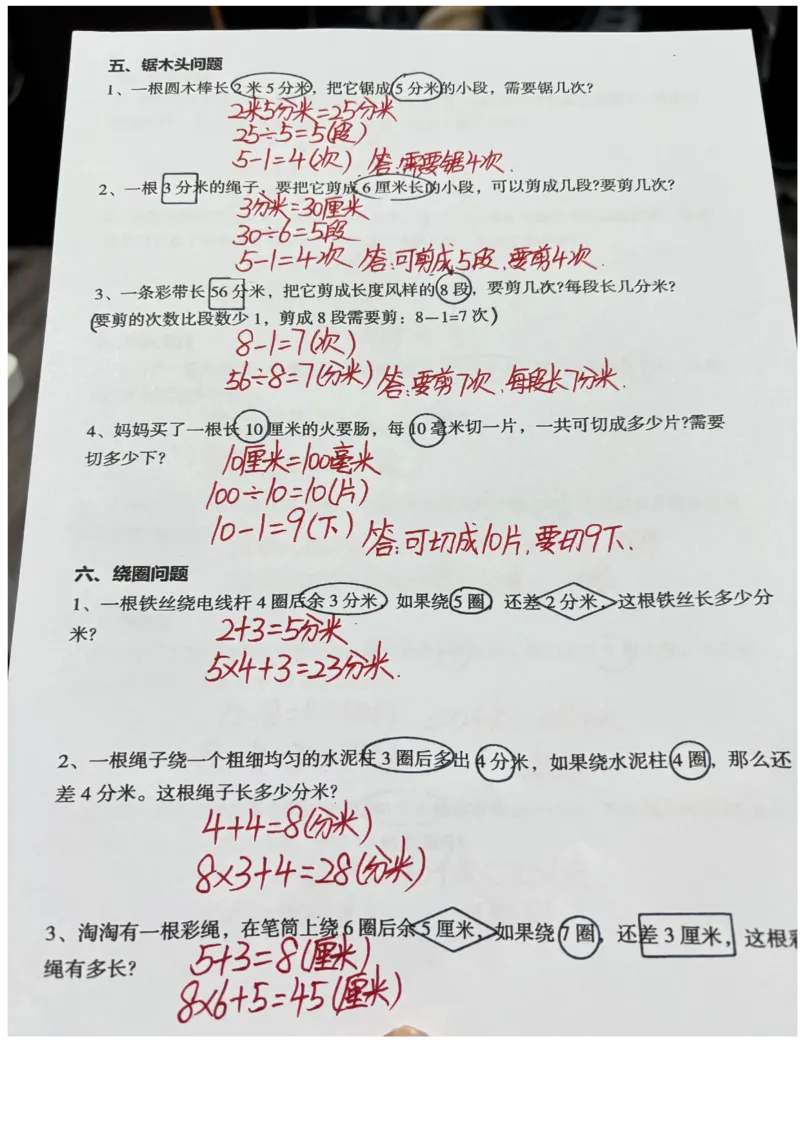 五、锯木头问题
1、一根圆木棒长2米5分米，把它锯成5分米的小段，需要锯几次?
2米5分米=25分米
25÷5=5(段)
5-1=4(次) 答:需要锯4次.
2、一根3分米的绳子，要把它剪成6厘米长的小段，可以剪成几段?要剪几次?
3分米=30厘米
30÷6=5段
5-1=4次 答:可剪成5段,要剪4次.
3、一条彩带长56分米，把它剪成长度风样的8段，要剪几次?每段长几分米?
(要剪的次数比段数少1，剪成8段需要剪：8—1=7次)
8-1=7(次)
56÷8=7(分米) 答:要剪7次,每段长7分米.
4、妈妈买了一根长10厘米的火要肠，每10毫米切一片，一共可切成多少片?需要
切多少下?
10厘米=100毫米
100÷10=10(片)
10-1=9(下) 答:可切成10片,要切9下.
六、绕圈问题
1、一根铁丝绕电线杆4圈后余3分米，如果绕5圈，还差2分米，这根铁丝长多少分
米?
2+3=5分米
5×4+3=23分米.
2、一根绳子绕一个粗细均匀的水泥柱3圈后多出4分米，如果绕水泥柱4圈，那么还
差4分米。这根绳子长多少分米?
4+4=8(分米)
8×3+4=28(分米)
3、淘淘有一根彩绳，在笔筒上绕6圈后余5厘米，如果绕7圈，还差3厘米，这根彩
绳有多长?
5+3=8(厘米)
8×6+5=45(厘米)